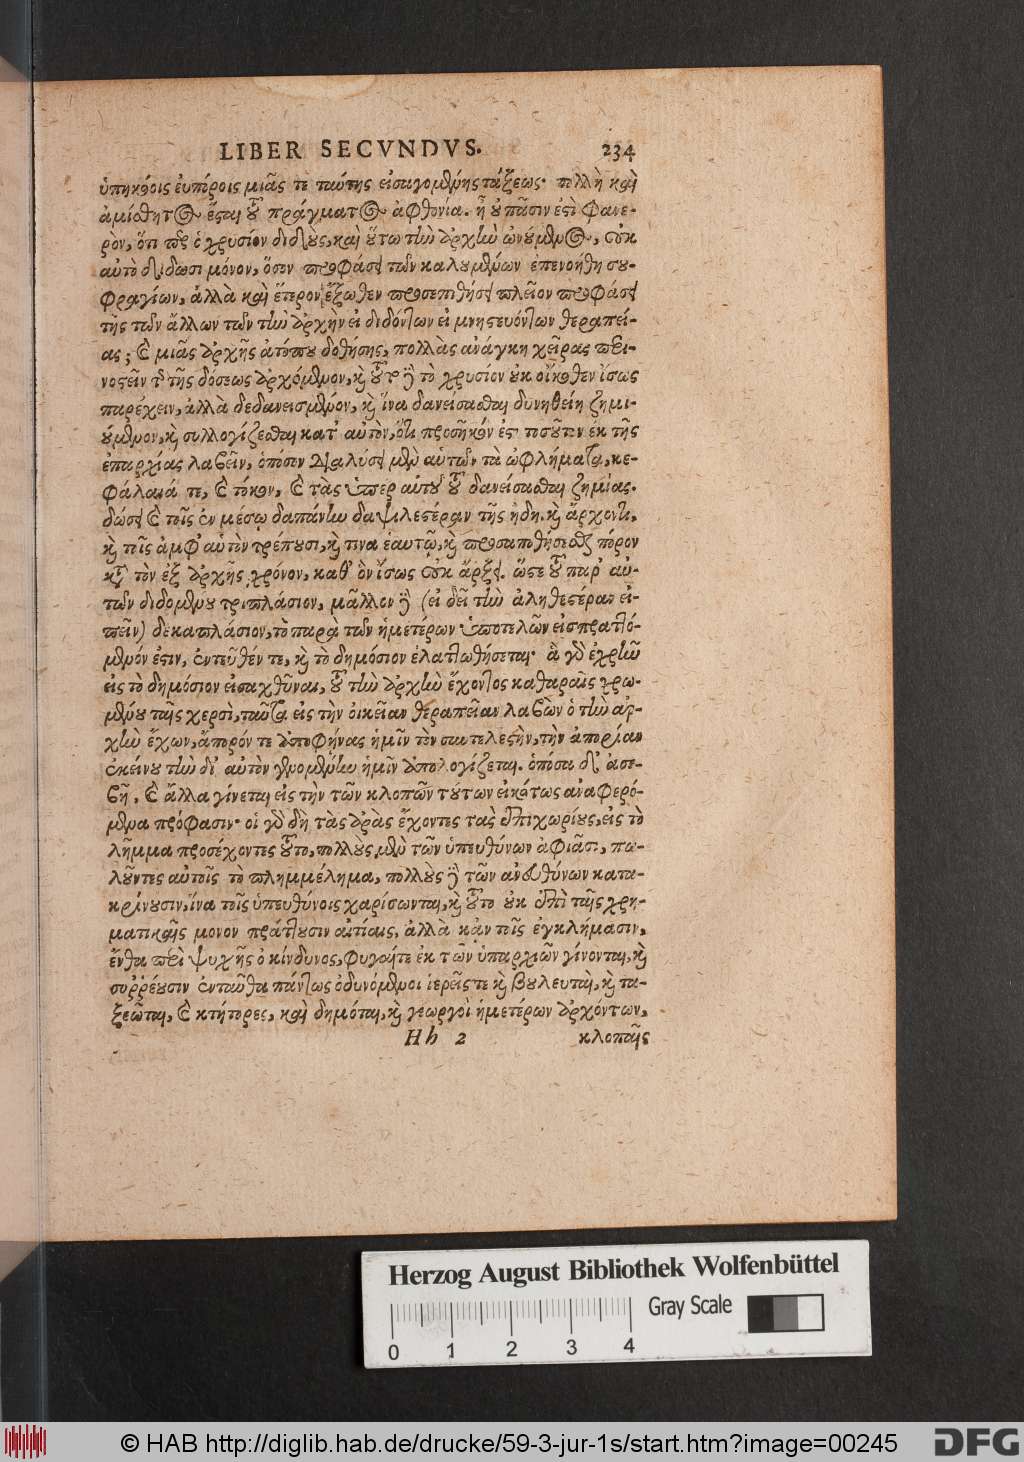 LIBER SECVNDVS. 234
ὑπηκόοις εὐπόροις μιᾶς τε ταύτης εἰσαγομένης τάξεως· πολλὴ καὶ
ἀμίσθητος ἔσται τοῦ πράγματος ἀφθονία. ἢ οὐ πᾶσιν ἐστὶ φανε-
ρὸν, ὅτι πᾶς ὁ χρυσίον διδοὺς, καὶ οὕτω τὴν ἀρχὴν ὠνούμενος, οὐκ
αὐτὸ δίδωσι μόνον, ὅσον προφάσει τῶν καλουμένων ἐπενοήθη σου-
φραγίων, ἀλλὰ καὶ ἕτερον ἔξωθεν προσεπιθήσει πλεῖον προφάσει
τῆς τῶν ἄλλων τῶν τὴν ἀρχὴν ἢ διδόντων ἢ μνηστευόντων θεραπεί-
ας; καὶ μιᾶς ἀρχῆς ἀτόπου δοθήσης, πολλὰς ἀνάγκη χεῖρας περι-
νοστεῖν τὸν τῆς δόσεως ἀρχόμενον, καὶ τοῦτο δὲ τὸ χρυσίον οὐκ οἴκοθεν ἴσως
παρέχειν, ἀλλὰ δεδανεισμένον, καὶ ἵνα δανείσασθαι δυνηθείη ζημι-
ούμενον, καὶ συλλογίζεσθαι κατ’ αὐτὸν, ὅτι προσῆκόν ἐστι τοσοῦτον ἐκ τῆς
ἐπαρχίας λαβεῖν, ὁπόσον διαλύσει μὲν αὐτῶν τὰ ὠφλήματα, κε-
φάλαιά τε, καὶ τόκον, καὶ τὰς ὑπὲρ αὐτοῦ τοῦ δανείσασθαι ζημίας.
δώσει καὶ τοῖς ἐν μέσῳ δαπάνην δαψιλεστέραν τῆς ἤδη. καὶ ἄρχοντι,
καὶ τοῖς ἀμφ’ αὐτὸν τρέπουσι, καὶ τινα ἑαυτῷ, καὶ προσαποθήσεται πόρον
κατὰ τὸν ἐξ ἀρχῆς χρόνον, καθ’ ὃν ἴσως οὐκ ἄρξει. ὥστε τοῦ παρ’ αὐ-
τῶν διδομένου τριπλάσιον, μᾶλλον δὲ (εἰ δεῖ τὴν ἀληθεστέραν εἰ-
πεῖν) δεκαπλάσιον, τὸ παρὰ τῶν ἡμετέρων ὑποτελῶν εἰσπραττό-
μενόν ἐστιν, ἐντεῦθέν τε, καὶ τὸ δημόσιον ἐλαττωθήσεται· ἃ γὰρ ἐχρῆν
εἰς τὸ δημόσιον εἰσαχθῆναι, τοῦ τὴν ἀρχὴν ἔχοντος καθαραῖς χρω-
μένου ταῖς χερσὶ, ταῦτα εἰς τὴν οἰκείαν θεραπείαν λαβὼν ὁ τὴν ἀρ-
χὴν ἔχων, ἄπορόν τε ἀποφήνας ἡμῖν τὸν συντελεστὴν, τὴν ἀπορίαν
ἐκείνου τὴν δι’ αὐτὸν γενομένην ἡμῖν ἀπολογίζεται. ὁπόσα δὲ ἀσε-
βῆ. καὶ ἄλλα γίνεται εἰς τὴν τῶν κλοπῶν τούτων εἰκότως ἀναφερό-
μενα πρόφασιν· οἱ γὰρ δὴ τὰς ἀρχὰς ἔχοντες τὰς ἐπιχωρίους, εἰς τὸ
λῆμμα προσέχοντες τοῦτο, πολλοὺς μὲν τῶν ὑπευθύνων ἀφιᾶσι, πω-
λοῦντες αὐτοῖς τὸ πλημμέλημα, πολλοὺς δὲ τῶν ἀνευθύνων κατα-
κρίνουσιν, ἵνα τοῖς ὑπευθύνοις χαρίσωνται, καὶ τοῦτο οὐκ ἐπὶ ταῖς χρη-
ματικαῖς μονον πράττουσιν αἰτίαις, ἀλλὰ κἀν τοῖς ἐγκλήμασιν,
ἔνθα περὶ ψυχῆς ὁ κίνδυνος, φυγαί τε ἐκ τῶν ὑπαρχιῶν γίνονται, καὶ
συῤῥέουσιν ἐνταῦθα πάντως ὀδυνόμενοι ἱερεῖς τε καὶ βουλευταὶ, καὶ τα-
ξεῶται, καὶ κτήτορες, καὶ δημόται, καὶ γεωργοὶ ἡμετέρων ἀρχόντων,
Hh 2 κλοπαῖς
Herzog August Bibliothek Wolfenbüttel
Gray Scale
0 1 2 3 4
© HAB http://diglib.hab.de/drucke/59-3-jur-1s/start.htm?image=00245 DFG